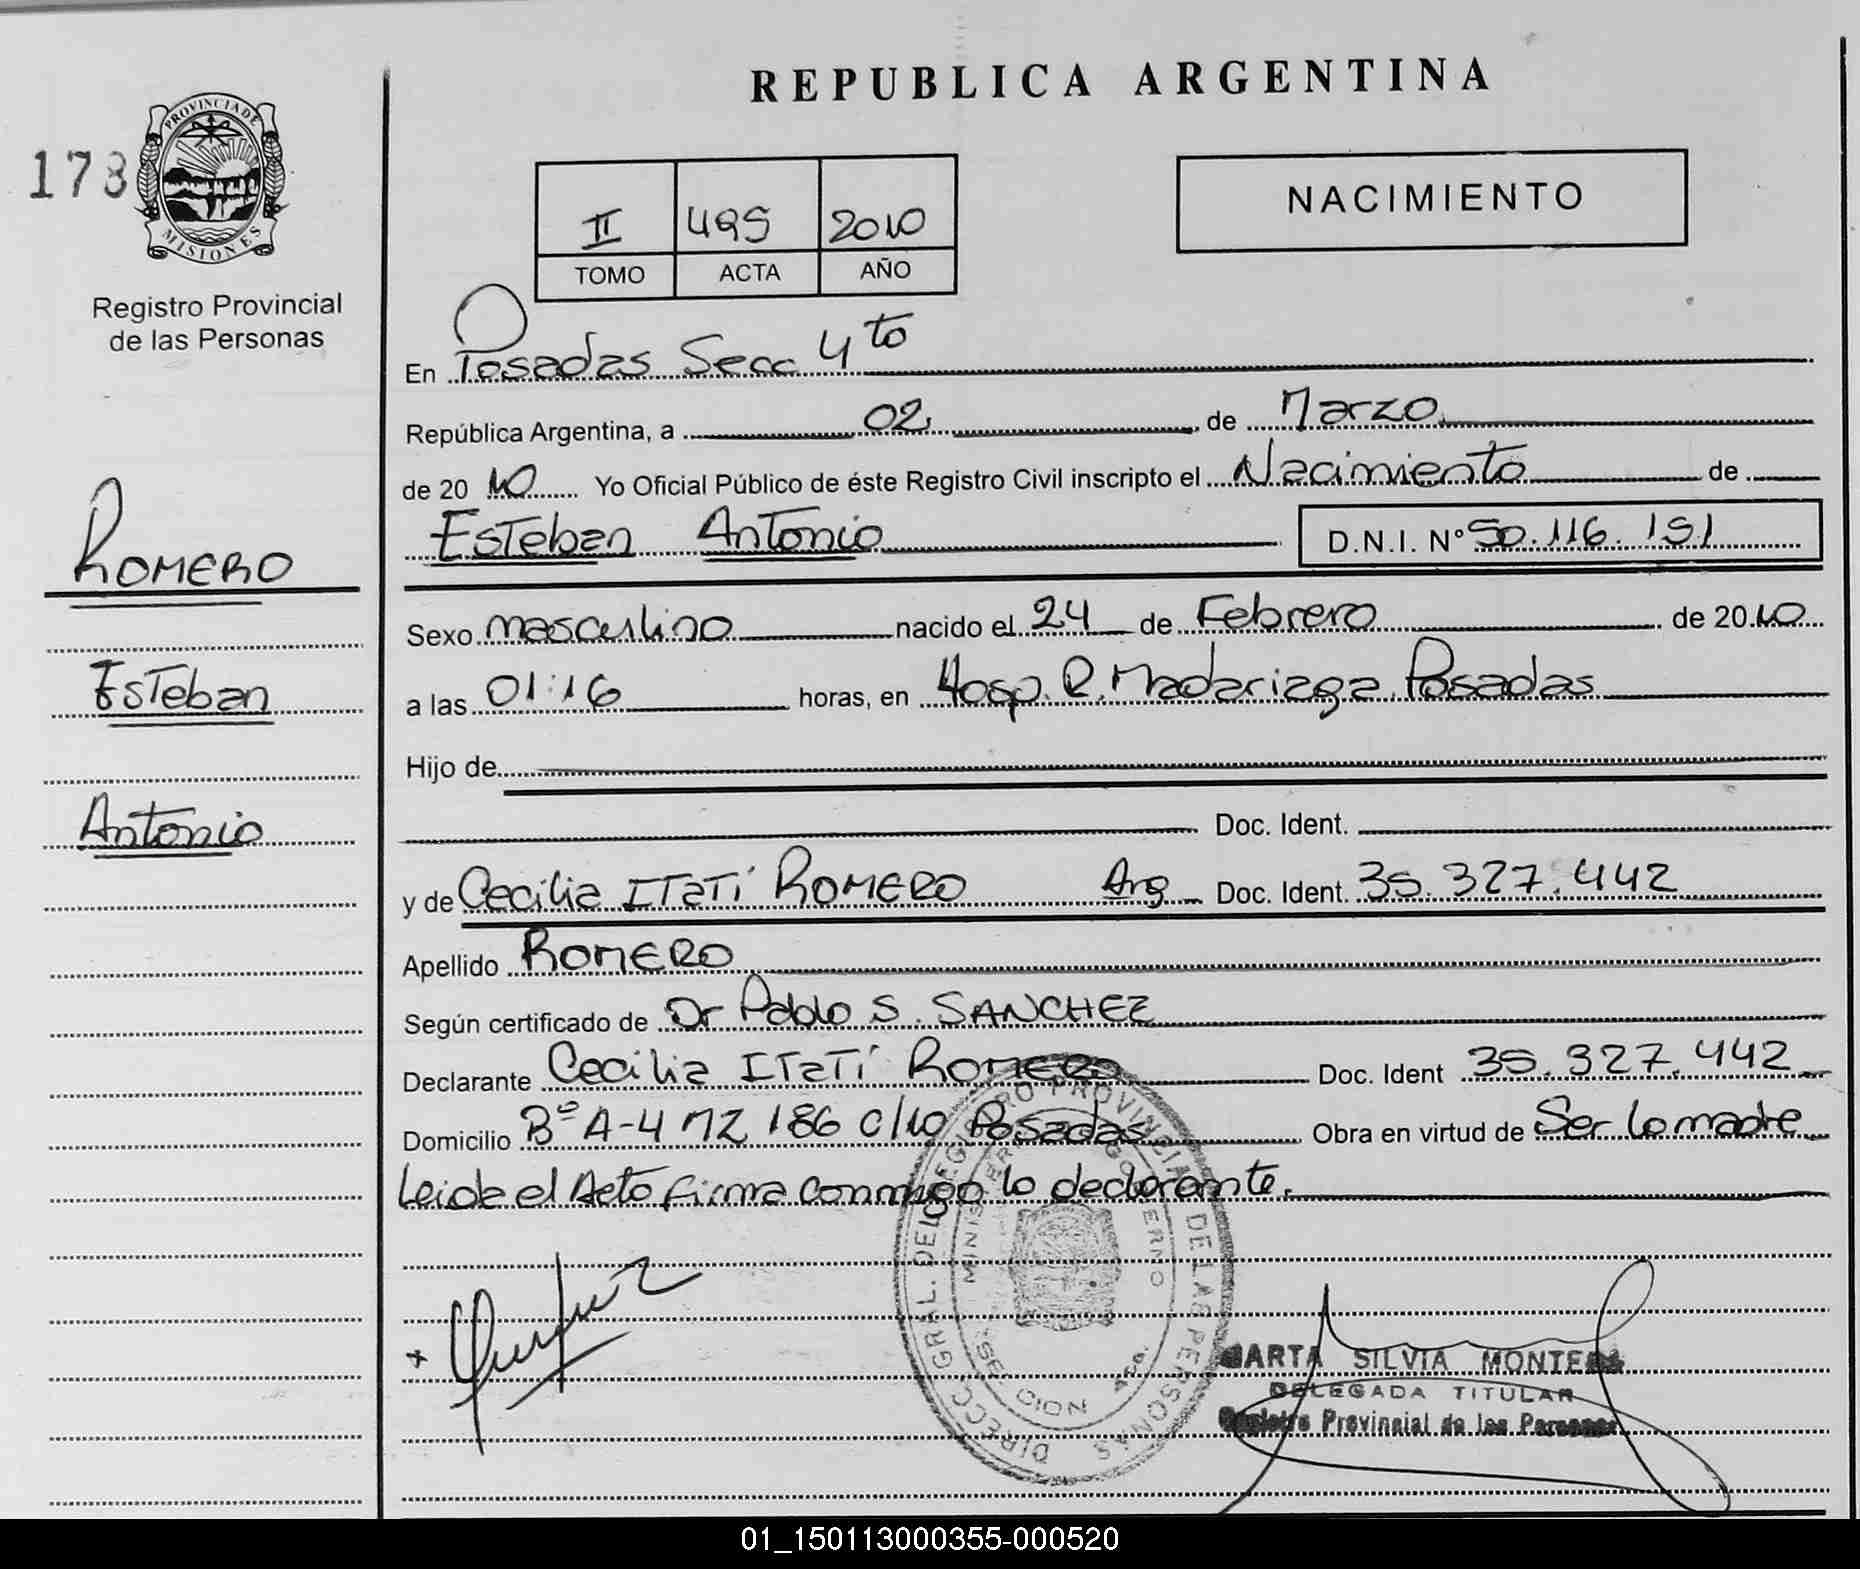 REPUBLICA ARGENTINA
178
PROVINCIA DE
MISIONES
Registro Provincial
de las Personas
II 495 2010
TOMO ACTA AÑO
NACIMIENTO
En Posadas Secc 4to
República Argentina, a 02 de Marzo
de 2010 Yo Oficial Público de éste Registro Civil inscripto el Nacimiento de
Esteban Antonio D.N.I. Nº 50.116.151
ROMERO
Esteban
Antonio
Sexo masculino nacido el 24 de Febrero de 2010
a las 01:16 horas, en Hosp. R. Madariaga Posadas
Hijo de
Doc. Ident.
y de Cecilia Itatí ROMERO Arg Doc. Ident. 35.327.442
Apellido ROMERO
Según certificado de Dr Pablo S. SANCHEZ
Declarante Cecilia Itatí ROMERO Doc. Ident 35.327.442
Domicilio Bº A-4 MZ 186 c/10 Posadas Obra en virtud de Ser la madre
Leida el Acta firma conmigo la declarante.
DIRECC. GRAL. DEL REGISTRO PROVINCIAL DE LAS PERSONAS
MARTA SILVIA MONTERO
DELEGADA TITULAR
Registro Provincial de las Personas
01_150113000355-000520